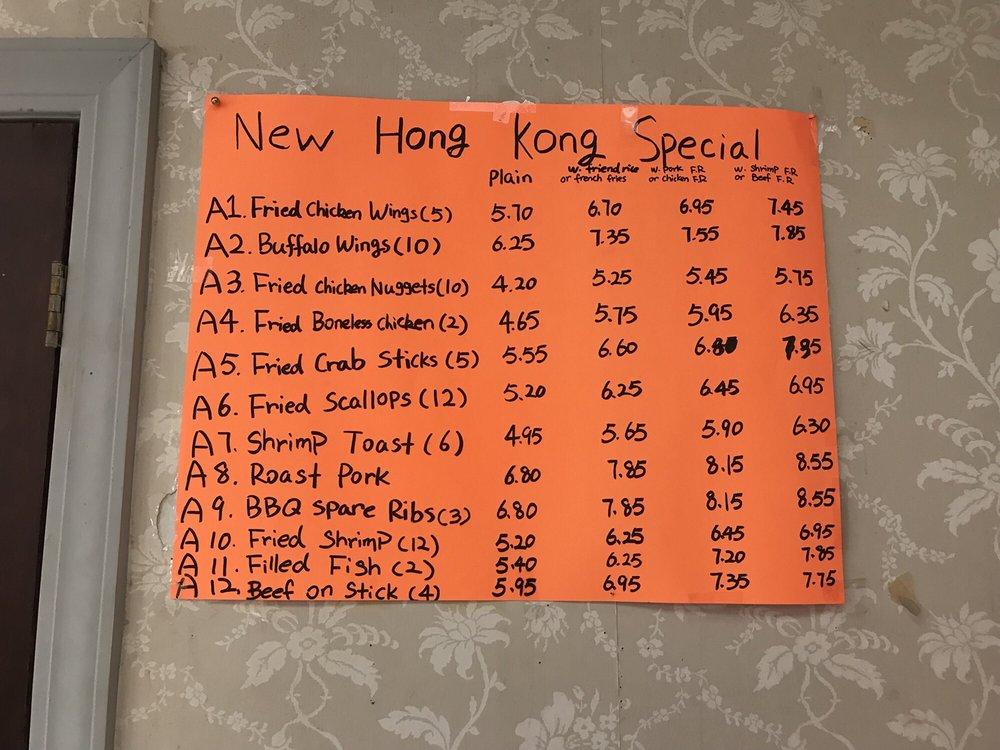 New Hong Kong Special
Plain w. friend rice or french fries w. Pork F.R or Chicken F.R w. Shrimp F.R or Beef F.R
A1. Fried Chicken Wings (5) 5.70 6.70 6.95 7.45
A2. Buffalo Wings (10) 6.25 7.35 7.55 7.85
A3. Fried Chicken Nuggets (10) 4.20 5.25 5.45 5.75
A4. Fried Boneless Chicken (2) 4.65 5.75 5.95 6.35
A5. Fried Crab Sticks (5) 5.55 6.60
A6. Fried Scallops (12) 5.20 6.25 6.45 6.95
A7. Shrimp Toast (6) 4.95 5.65 5.90 6.30
A8. Roast Pork 6.80 7.85 8.15 8.55
A9. BBQ Spare Ribs (3) 6.80 7.85 8.15 8.55
A10. Fried Shrimp (12) 5.20 6.25 6.45 6.95
A11. Filled Fish (2) 5.40 6.25 7.20 7.85
A12. Beef on Stick (4) 5.95 6.95 7.35 7.75